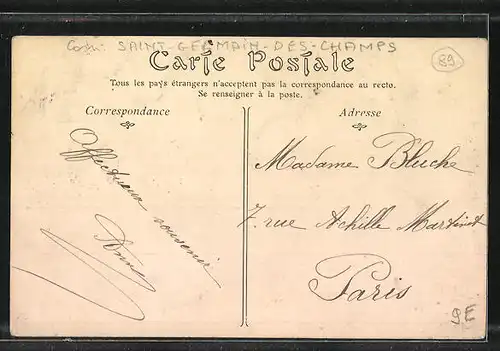 SAINT-GERMAIN-DES-CHAMPS
89
Carte Postale
Tous les pays étrangers n'acceptent pas la correspondance au recto.
Se renseigner à la poste.
Correspondance
Adresse
Affectueux souvenir
Madame Bluche
7. rue Achille Martinet
Paris
9E